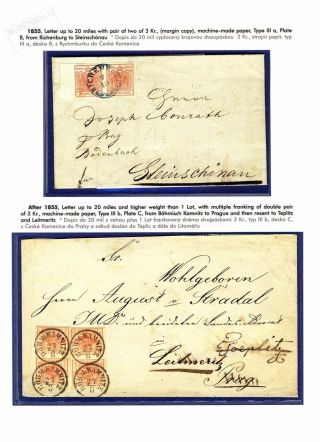 1855, Letter up to 20 miles with pair of two of 3 Kr., (margin copy), machine-made paper, Type III a, Plate
B, from Richenburg to Steinschönau * Dopis do 20 mil vyplacený krajovou dvoupáskou 3 Kr., strojní papír, typ
III a, deska B, z Rychmburku do České Kamenice
Joseph Conrath
Prag
Bodenbach
Steinschönau
After 1855, Letter up to 20 miles and higher weight than 1 Lot, with multiple franking of double pair
of 3 Kr., machine-made paper, Type III b, Plate C, from Böhmisch Kamnitz to Prague and then resent to Teplitz
and Leitmeritz * Dopis do 20 mil s vahou přes 1 Lot frankovaný dvěma dvoupáskami 3 kr, typ III b, deska C,
z České Kamenice do Prahy a odtud doslán do Teplic a dále do Litoměřic
Wohlgeboren
Herrn August Stradal
JUD. und Landes-Advocat
Toeplitz
Leitmeritz
Prag